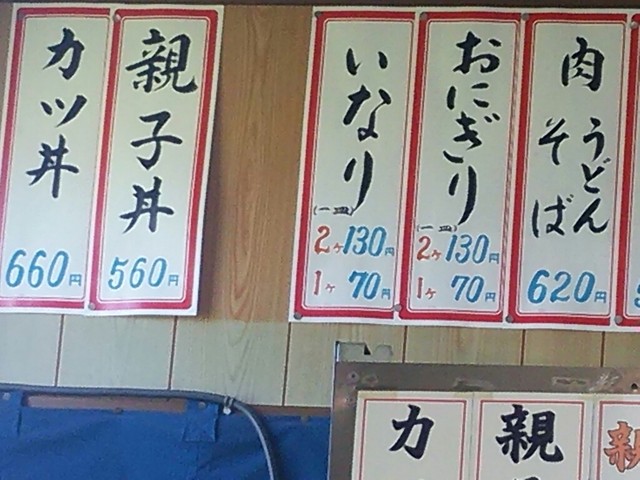 カツ丼
660円
親子丼
560円
いなり
(一皿)
2ヶ130円
1ヶ 70円
おにぎり
(一皿)
2ヶ130円
1ヶ 70円
肉
うどん
そば
620円
カ
親
親